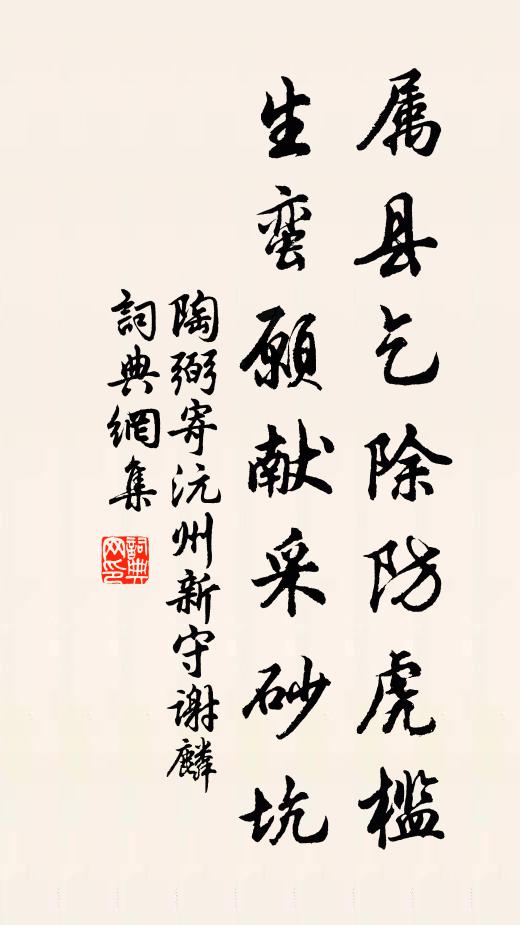 属县乞除防虎槛
生蛮愿献采砂坑
陶弼寄沅州新守谢麟
詞典網集
詞典网印